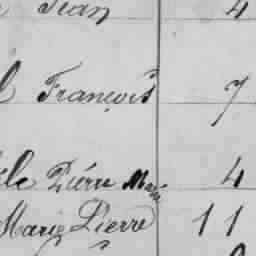 Jean 4
François 7
Pierre Marie 4
Marie Pierre 11